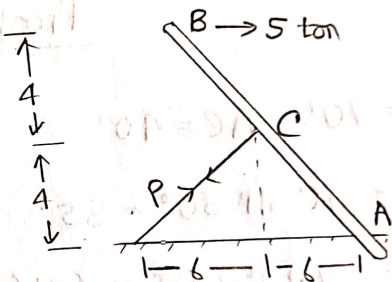 B → 5 ton
4
C
4
P
A
6 6